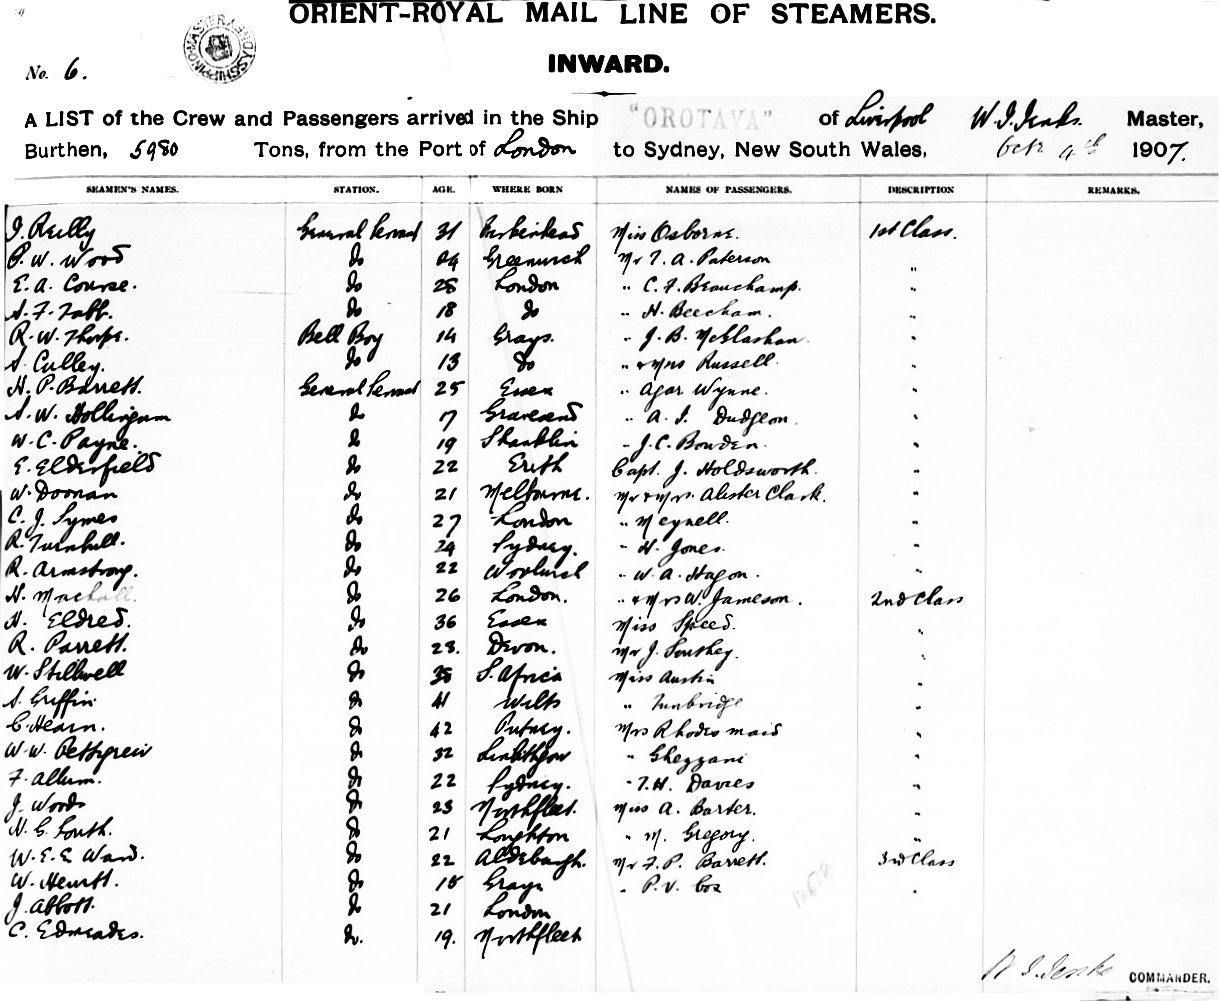 ORIENT-ROYAL MAIL LINE OF STEAMERS.
INWARD.
No. 6.
A LIST of the Crew and Passengers arrived in the Ship "OROTAVA" of Liverpool W. J. Jenks. Master,
Burthen, 5980 Tons, from the Port of London to Sydney, New South Wales, Octr 4th 1907.
SEAMEN'S NAMES. STATION. AGE. WHERE BORN NAMES OF PASSENGERS. DESCRIPTION REMARKS.
J. Reilly General Servant 31 Birkenhead Miss Osborne. 1st Class.
P. W. Wood Do 24 Greenwich Mr T. A. Paterson "
E. A. Course. Do 28 London " C. F. Beauchamp. "
A. F. Tabb. Do 18 Do " H. Beecham. "
R. W. Thorpe. Bell Boy 14 Grays. " J. B. McGlashan. "
A. Culley. Do 13 Do " & Mrs Russell. "
H. P. Barrett. General Servant 25 Essex " Agar Wynne. "
A. W. Hollingum Do 17 Gravesend " A. J. Dudgeon "
W. C. Payne. Do 19 Shanklin " J. C. Bowden. "
E. Elderfield Do 22 Erith Capt. J. Holdsworth. "
W. Doonan Do 21 Melbourne. Mr & Mrs. Alister Clark. "
C. J. Symes Do 27 London " Meynell. "
R. Turnbull. Do 24 Sydney. " H. Jones. "
R. Armstrong. Do 22 Woolwich " W. A. Hagon. "
H. Do 26 London. " & Mrs W. Jameson. 2nd Class
H. Eldred. Do 36 Essex Miss Speed. "
R. Parrett. Do 28. Devon. Mr J. Southey. "
W. Stillwell Do 38 S. Africa Miss Austin "
A. Griffin Do 41 Wilts " Tunbridge "
C. Hearn. Do 42 Putney. Mrs Rhodes maid "
W. W. Pettigrew Do 32 Linlithgow " Ghezzani "
F. Allum. Do 22 Sydney. " T. H. Davies "
J. Woods Do 23 Northfleet. Miss A. Barter. "
N. G. South. Do 21 Loughton " M. Gregory. "
W. E. E Ward. Do 22 Aldeburgh. Mr F. P. Barrett. 3rd Class
W. Hewitt. Do 18 Grays " P. V. Cox "
J. Abbott. Do 21 London
C. Edmeades. Do. 19. Northfleet
W. J. Jenks COMMANDER.